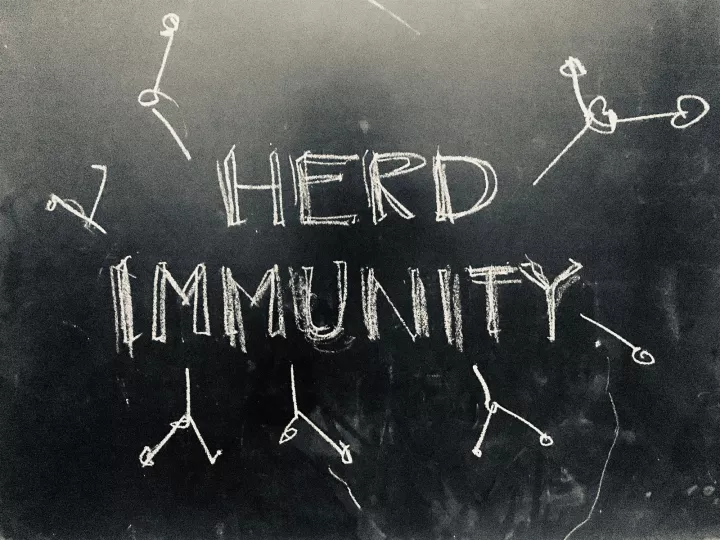 HERD
IMMUNITY